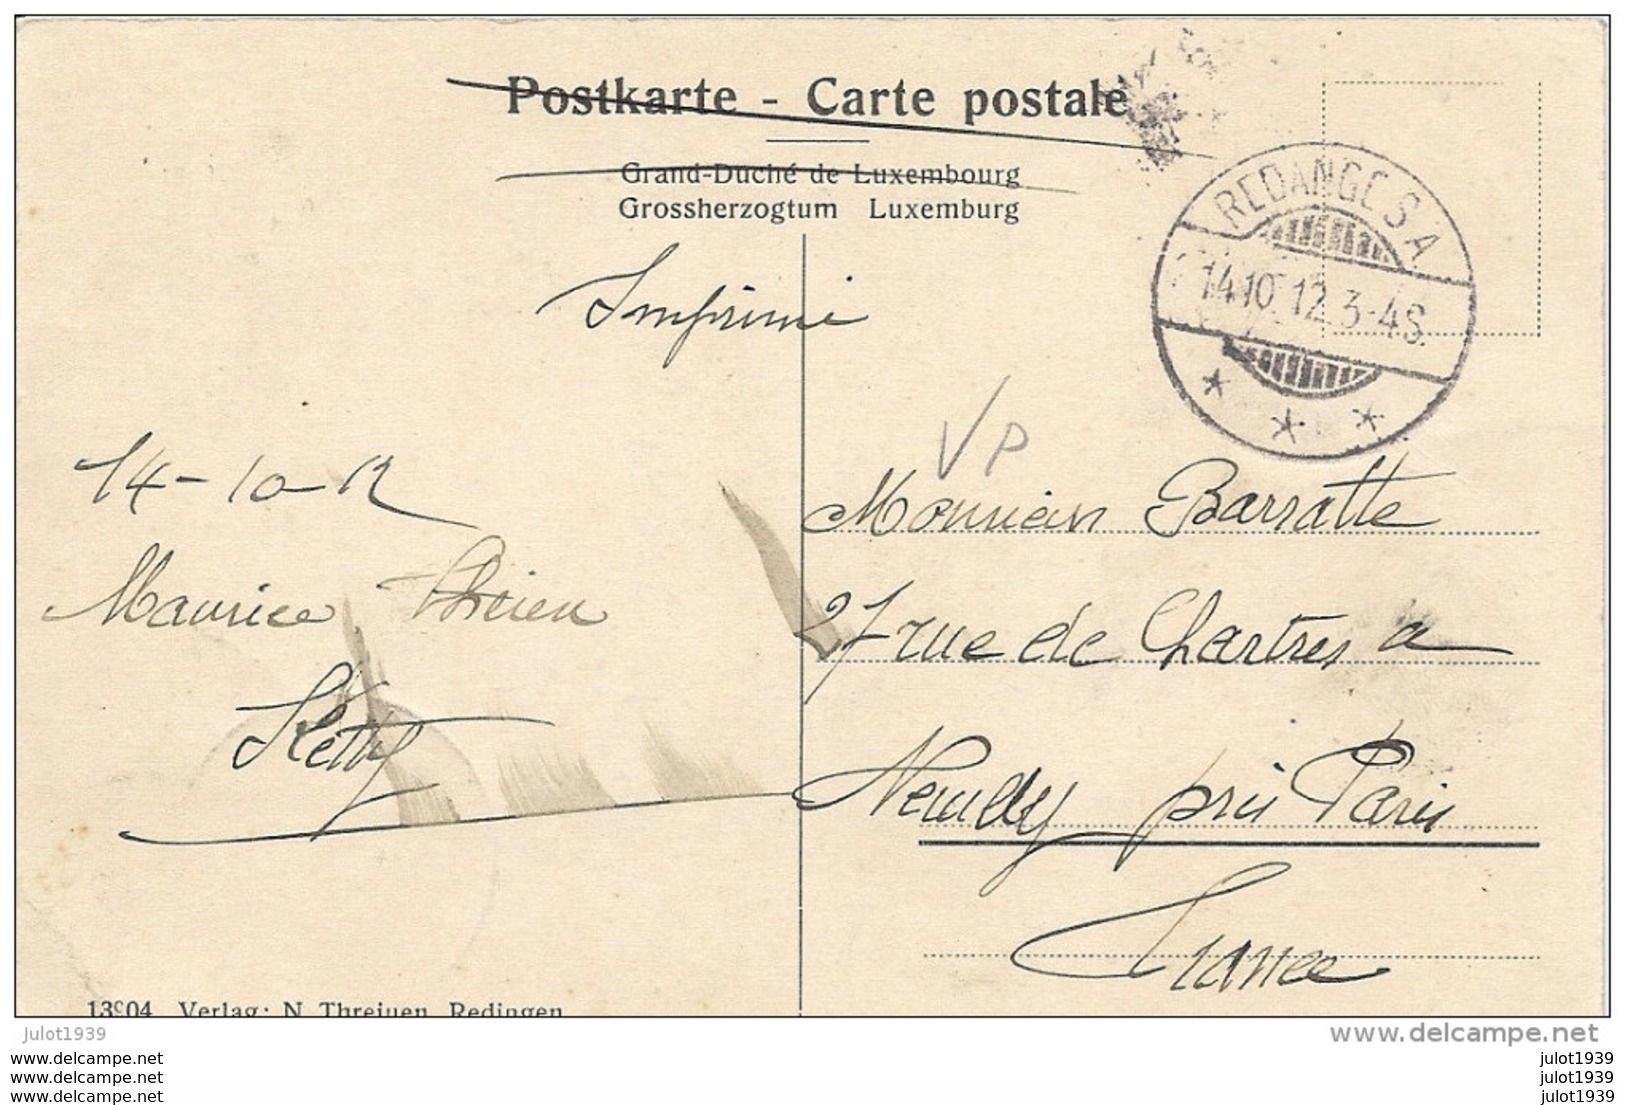 Postkarte - Carte postale
Grand-Duché de Luxembourg
Grossherzogtum Luxemburg
REDANGE S.A.
14.10.12.3-4S.
Imprimé
VP
14-10-12
Maurice
Ketty
Monsieur Barratte
27 rue de Chartres a
Neuilly près Paris
France
13904 Verlag: N. Threinen, Redingen
julot1939
www.delcampe.net
www.delcampe.net
www.delcampe.net
delcampe.net
julot1939
julot1939
julot1939